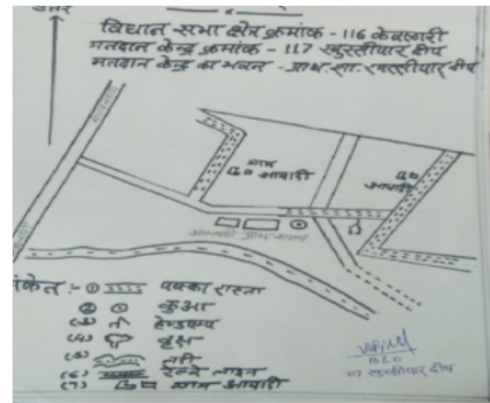 उत्तर
विधान सभा क्षेत्र क्रमांक - 116 केवलारी
मतदान केन्द्र क्रमांक - 117 खुरसीपार टीप
मतदान केन्द्र का भवन - प्राथ. शा. खुरसीपार टीप
ग्राम
आबादी
आबादी
आंगनवाड़ी प्राथ. शाला
संकेत :- पक्का रास्ता
कुआ
(3) हेन्डपम्प
(4) वृक्ष
(5) नदी
(6) रेल्वे लाइन
(7) ग्राम आबादी
BLO
117 खुरसीपार टीप